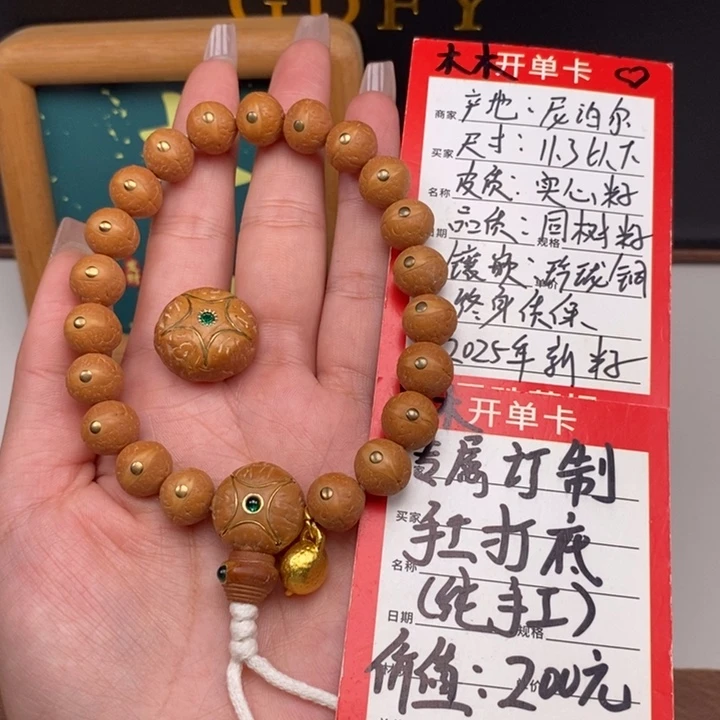 GDFY
木木开单卡
商家 产地：尼泊尔
买家 尺寸：11.3以下
名称 皮质：实心籽
日期 品质：同树籽 规格
镶嵌：玲珑铜
终身质保
2025年新籽
木 开单卡
专属订制
买家 手工打底
名称 (纯手工)
日期 规格
价值：200元